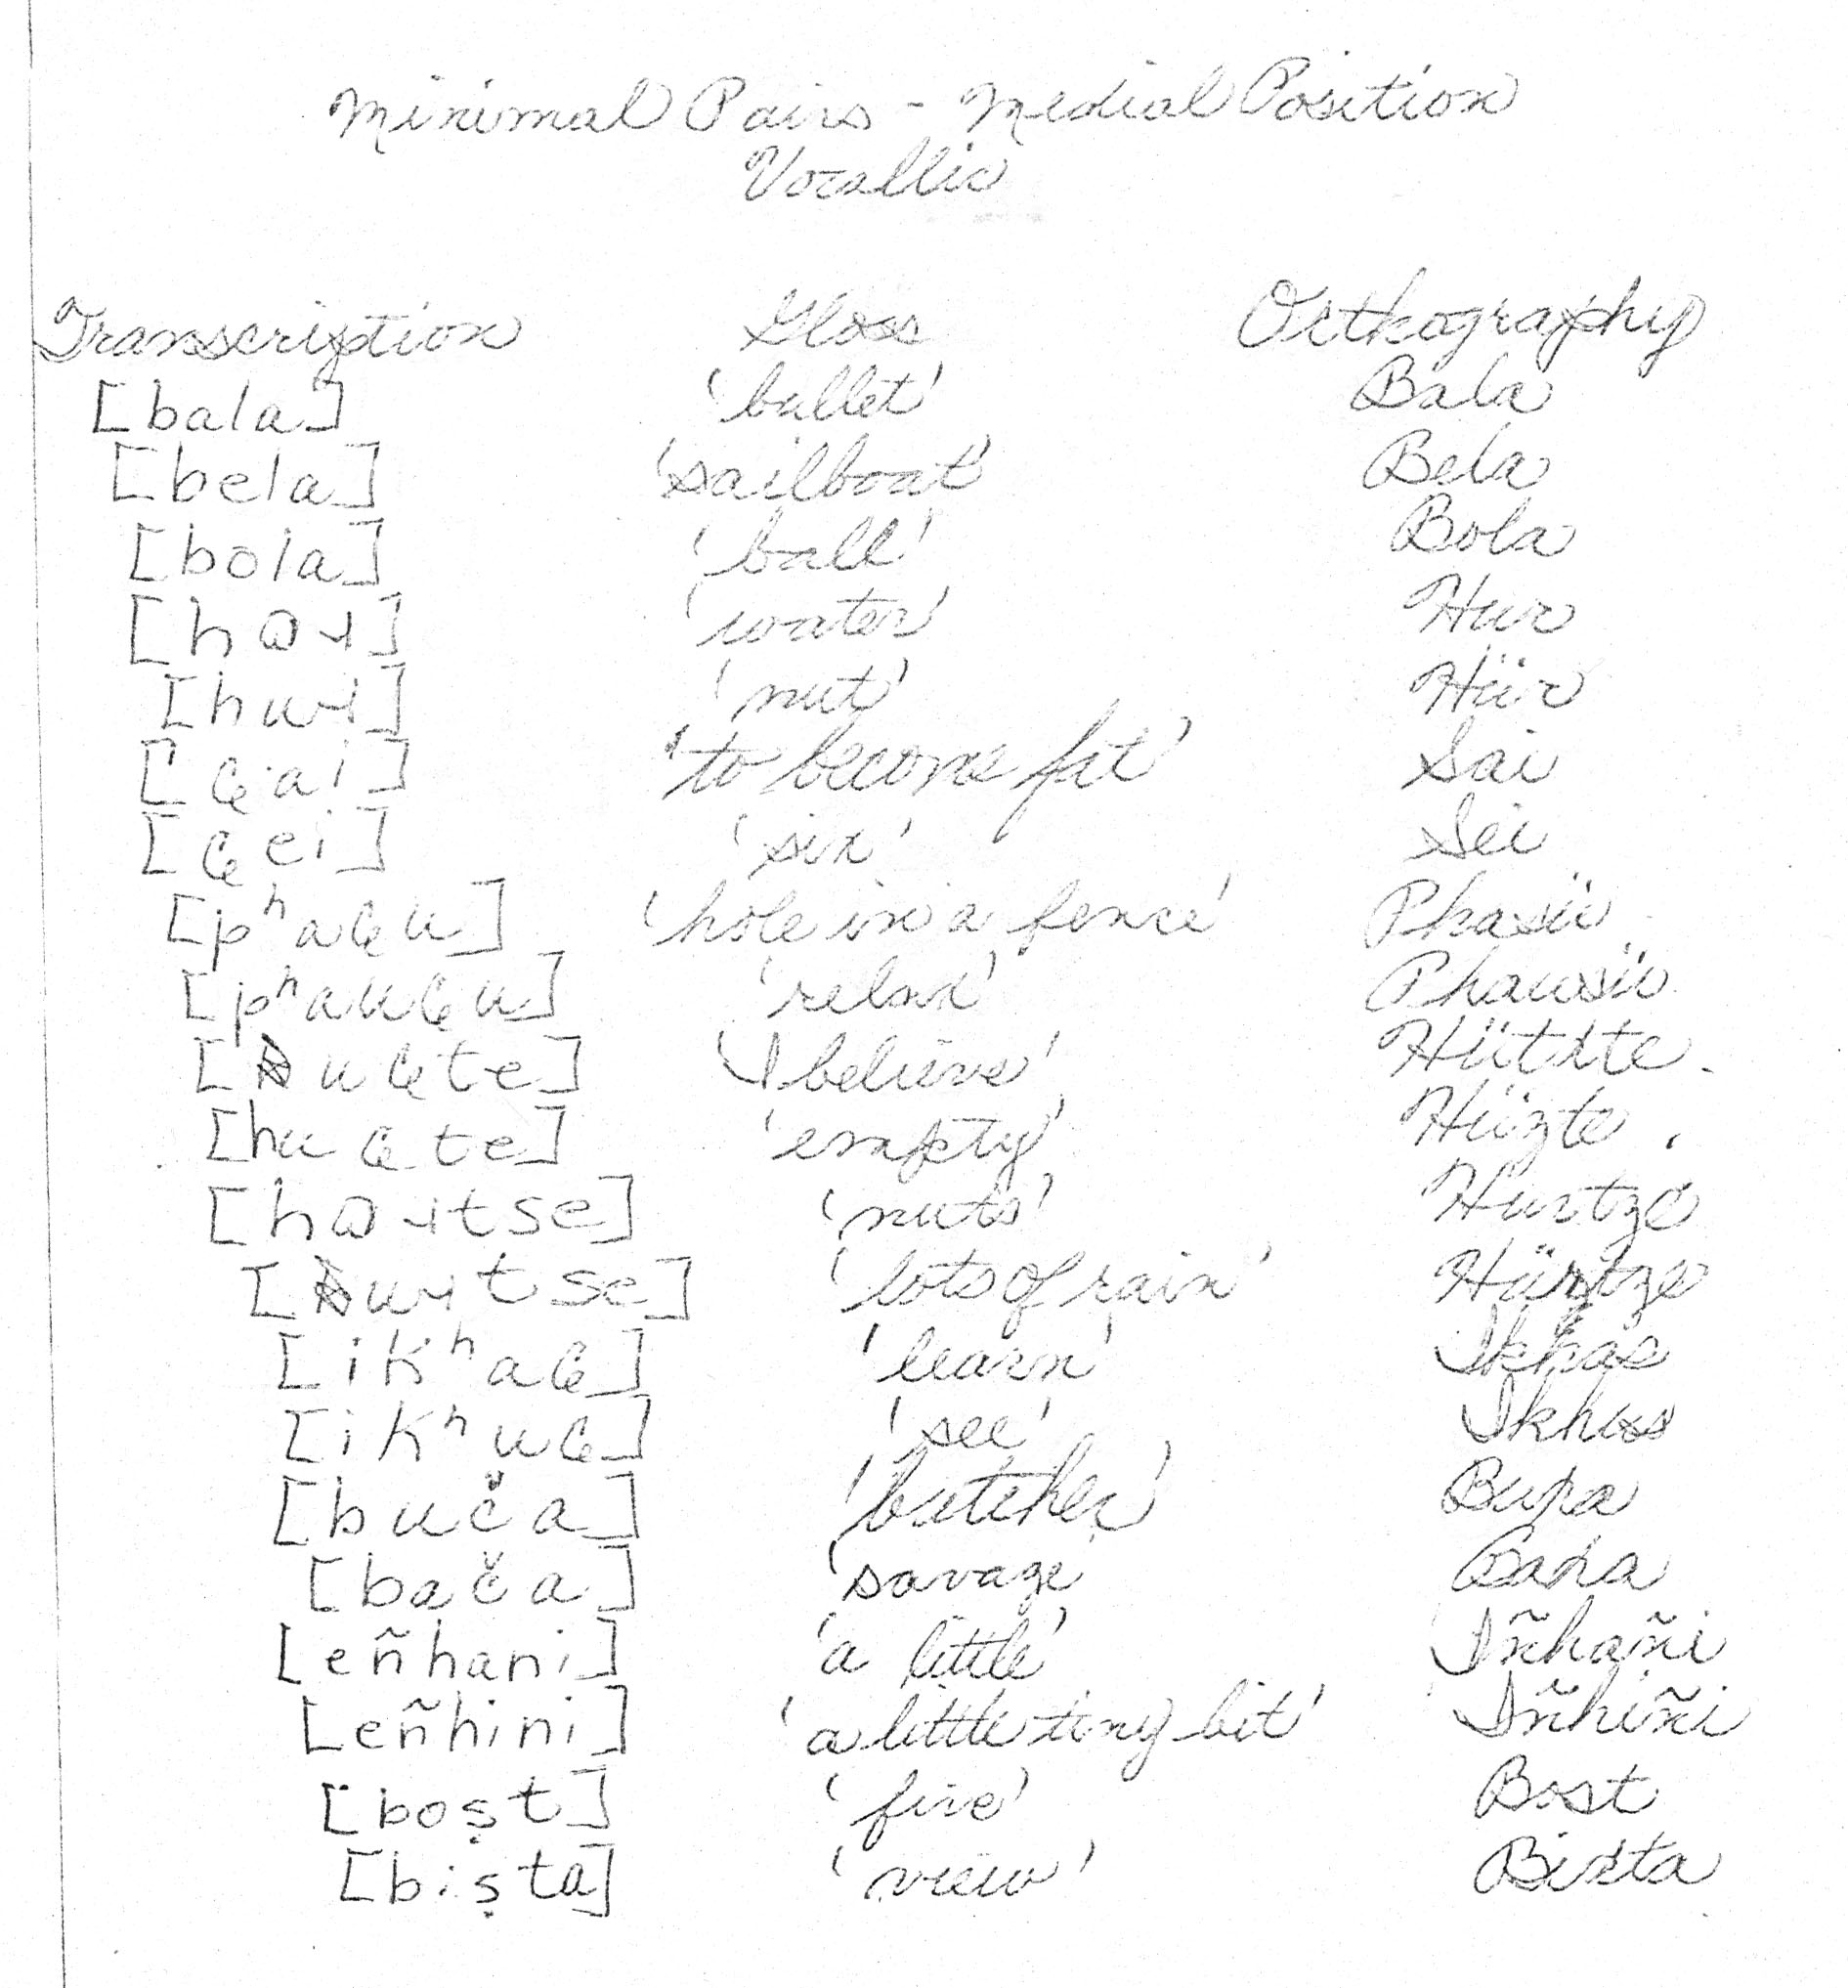 Minimal Pairs - Medial Position
Vocallic
Transcription Gloss Orthography
[bala] 'bullet' Bala
[bela] 'sailboat' Bela
[bola] 'ball' Bola
'water' Hur
[huɹ] 'nut' Hür
'to become fit' Sai
'six' Sei
'hole in a fence' Phasü
'relax' Phausü
'I believe'
'empty' Hüzte
'nuts' Hurtze
'lots of rain' Hürtze
'learn' Ikhas
'see' Ikhus
[buča] 'butcher'
[bača] 'savage'
[eñhani] 'a little' Iñhañi
[eñhini] 'a little tiny bit' Iñhiñi
[boṣt] 'five' Bost
[biṣta] 'view' Bista